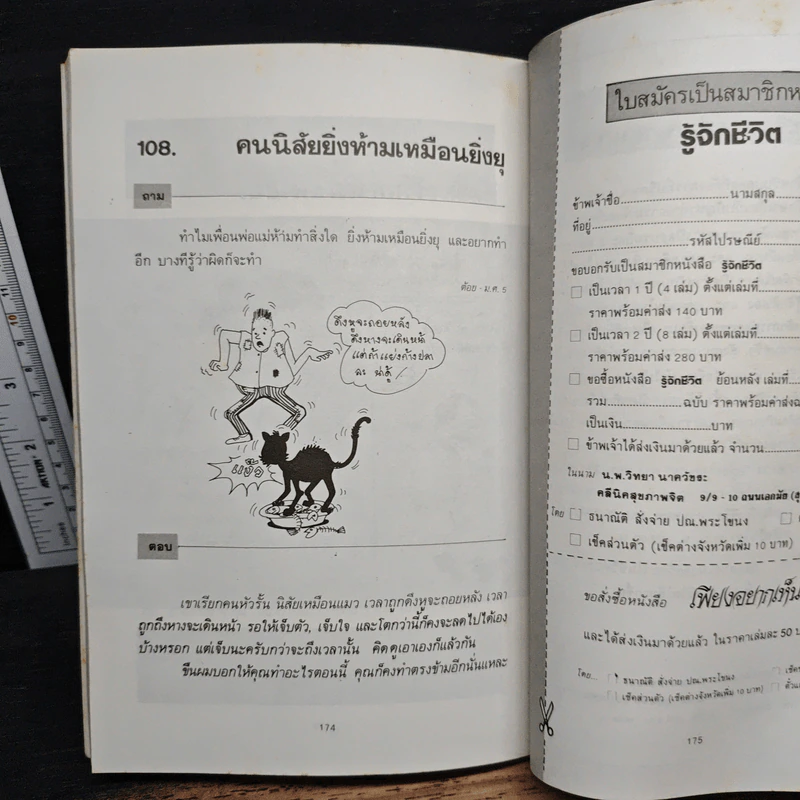 108. คนนิสัยยิ่งห้ามเหมือนยิ่งยุ
ถาม
ทำไมเพื่อนพ่อแม่ห้ามทำสิ่งใด ยิ่งห้ามเหมือนยิ่งยุ และอยากทำ
อีก บางทีรู้ว่าผิดก็จะทำ
ต้อย - ม.ศ. 5
ดึงหูจะถอยหลัง
ดึงหางจะเดินหน้า
แต่ถ้าแย่งก้างปลา
ละ น่าดู!
แง้ว
ตอบ
เขาเรียกคนหัวรั้น นิสัยเหมือนแมว เวลาถูกดึงหูจะถอยหลัง เวลา
ถูกดึงหางจะเดินหน้า รอให้เจ็บตัว, เจ็บใจ และโตกว่านี้ก็คงจะลดไปได้เอง
บ้างหรอก แต่เจ็บนะครับกว่าจะถึงเวลานั้น คิดดูเอาเองก็แล้วกัน
ขืนผมบอกให้คุณทำอะไรตอนนี้ คุณก็คงทำตรงข้ามอีกนั่นแหละ
174
ใบสมัครเป็นสมาชิกห
รู้จักชีวิต
ข้าพเจ้าชื่อ นามสกุล
ที่อยู่
รหัสไปรษณีย์
ขอบอกรับเป็นสมาชิกหนังสือ รู้จักชีวิต
เป็นเวลา 1 ปี (4 เล่ม) ตั้งแต่เล่มที่
ราคาพร้อมค่าส่ง 140 บาท
เป็นเวลา 2 ปี (8 เล่ม) ตั้งแต่เล่มที่
ราคาพร้อมค่าส่ง 280 บาท
ขอซื้อหนังสือ รู้จักชีวิต ย้อนหลัง เล่มที่
รวม ฉบับ ราคาพร้อมค่าส่งฉ
เป็นเงิน บาท
ข้าพเจ้าได้ส่งเงินมาด้วยแล้ว จำนวน
ในนาม น.พ.วิทยา นาควัชระ
คลีนิคสุขภาพจิต 9/9 - 10 ถนนเอกมัย (สุ
โดย ธนาณัติ สั่งจ่าย ปณ.พระโขนง
เช็คส่วนตัว (เช็คต่างจังหวัดเพิ่ม 10 บาท)
ขอสั่งซื้อหนังสือ เพียงอยากเห็น
และได้ส่งเงินมาด้วยแล้ว ในราคาเล่มละ 50 บ
โดย... ธนาณัติ สั่งจ่าย ปณ.พระโขนง เช็ค
เช็คส่วนตัว (เช็คต่างจังหวัดเพิ่ม 10 บาท) ตั๋วแ
175